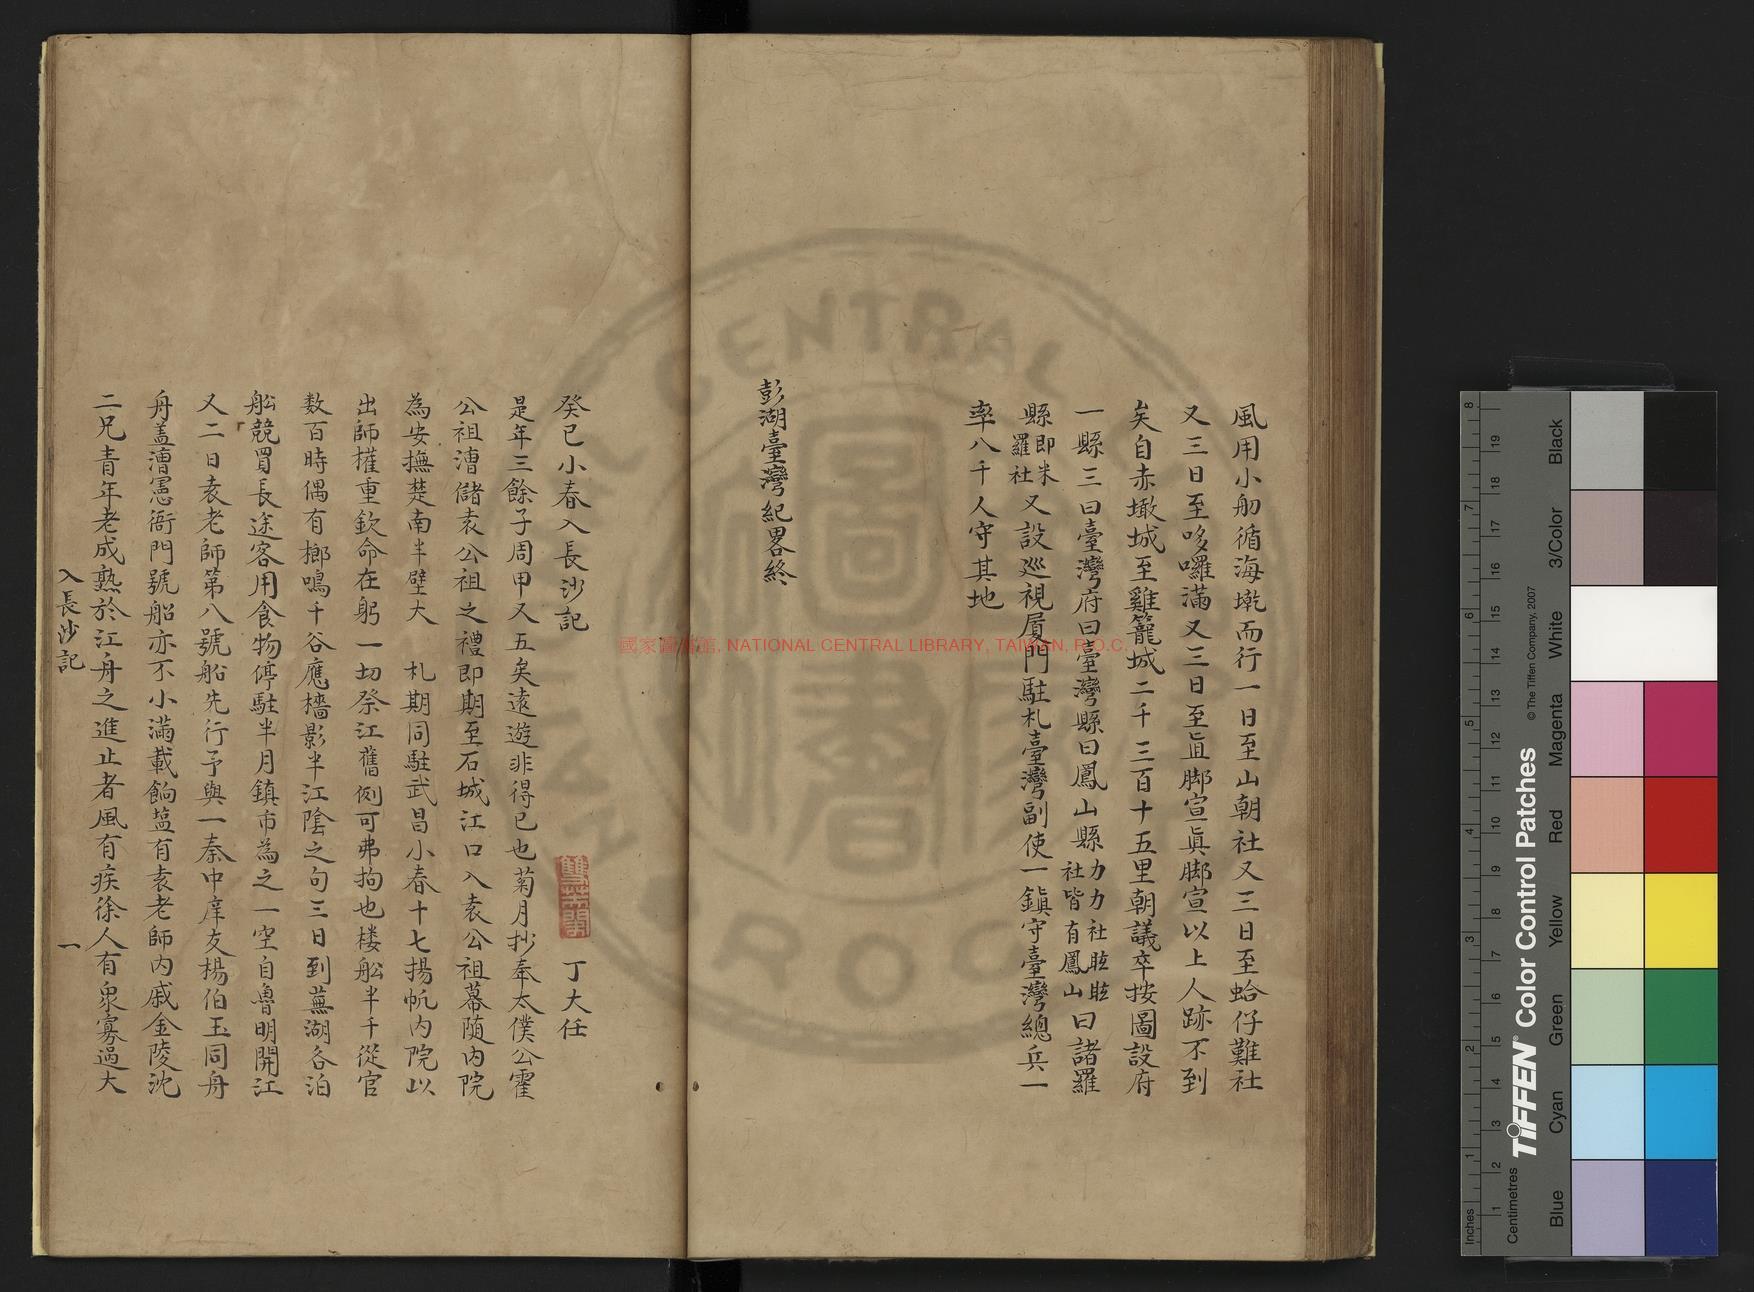 風用小舠循海墘而行一日至山朝社又三日至蛤仔難社
又三日至哆囉滿又三日至直腳宣眞腳宣以上人跡不到
矣自赤墈城至雞籠城二千三百十五里朝議卒按圖設府
一縣三曰臺灣府曰臺灣縣曰鳳山縣力力社眩眩社皆有鳳山曰諸羅
縣即米羅社又設巡視厦門駐札臺灣副使一鎮守臺灣總兵一
率八千人守其地
彭湖臺灣紀畧終
癸巳小春入長沙記
丁大任
是年三餘子周甲又五矣遠遊非得已也菊月抄奉太僕公霍
公祖漕儲袁公祖之禮即期至石城江口入袁公祖幕随内院
為安撫楚南半壁大 札期同駐武昌小春十七揚帆内院以
出師擁重欽命在躬一切祭江舊例可弗拘也楼舩半千從官
数百時偶有榔鳴千谷應檣影半江陰之句三日到蕪湖各泊
舩競買長途客用食物停駐半月鎮市為之一空自魯明開江
又二日袁老師第八號船先行予與一秦中庠友楊伯玉同舟
舟盖漕憲衙門號船亦不小滿載餉塩有袁老師内戚金陵沈
二兄青年老成熟於江舟之進止者風有疾徐人有衆寡過大
入長沙記
一
國家圖書館, NATIONAL CENTRAL LIBRARY, TAIWAN, R.O.C.
Inches
Centimetres
TIFFEN® Color Control Patches
© The Tiffen Company, 2007
Blue
Cyan
Green
Yellow
Red
Magenta
White
3/Color
Black